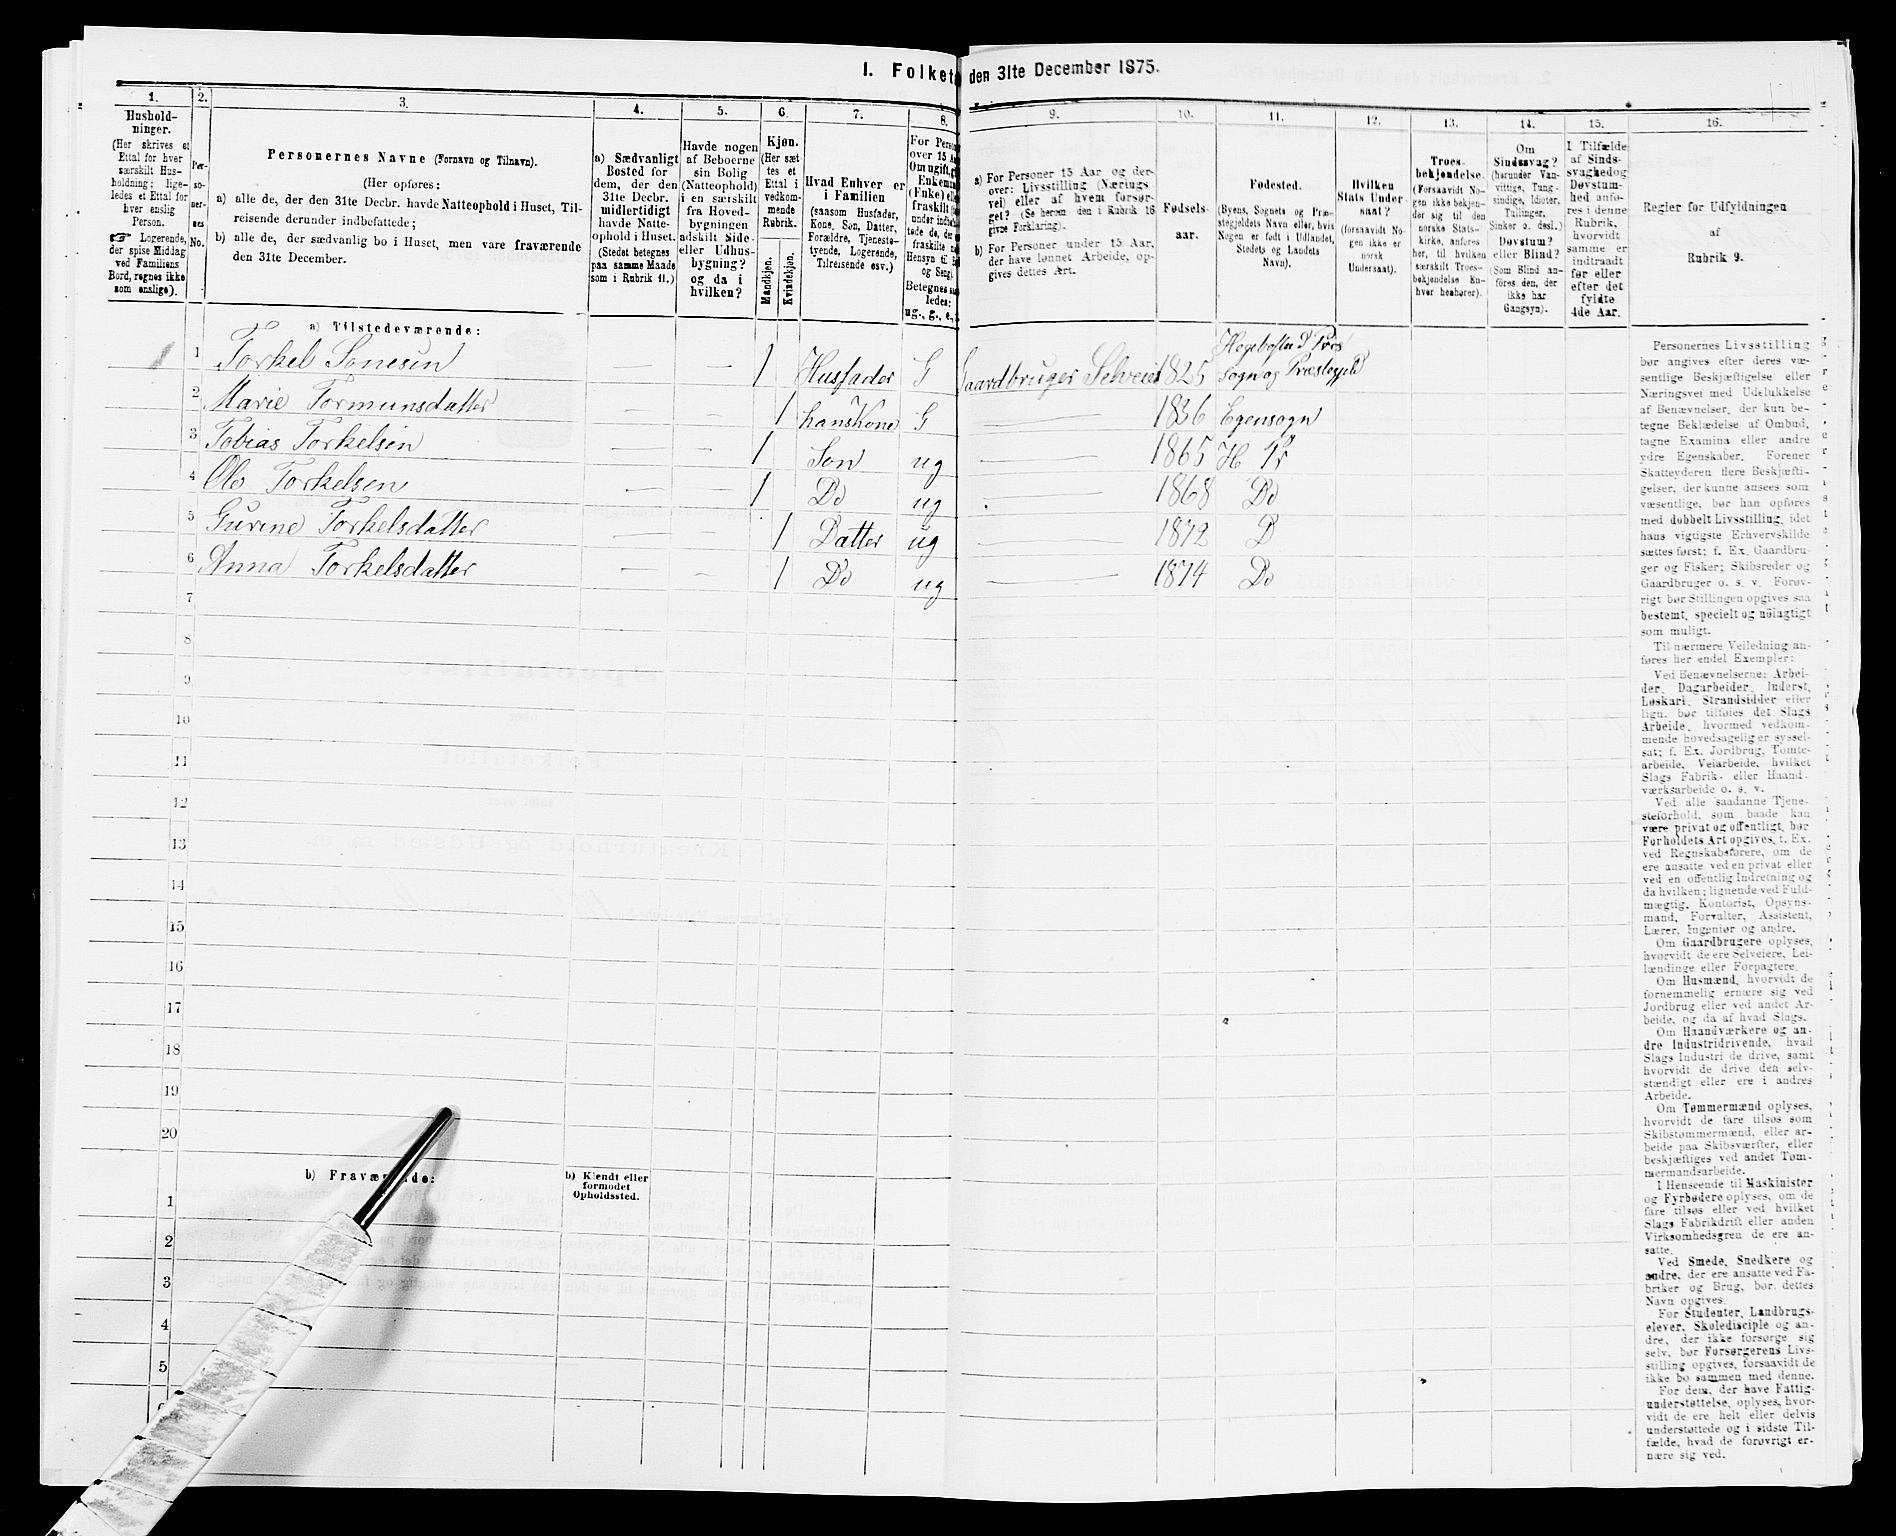 1. Folket den 31te December 1875.
1.
Hushold-
ninger.
(Her skrives et
Ettal for hver
særskilt Hus-
holdning; lige-
ledes et Ettal for
hver enslig
Person.
☞ Logerende,
der spise Middag
ved Familiens
Bord, regnes ikke
som enslige).
2.
Per-
so-
ner-
nes
No.
3.
Personernes Navne (Fornavn og Tilnavn).
(Her opføres:
a) alle de, der den 31te Decbr. havde Natteophold i Huset, Til-
reisende derunder indbefattede;
b) alle de, der sædvanlig bo i Huset, men vare fraværende
den 31te December.
4.
a) Sædvanligt
Bosted for
dem, der den
31te Decbr.
midlertidigt
havde Natte-
ophold i Huset.
(Stedet betegnes
paa samme Maade
som i Rubrik 11.)
5.
Havde nogen
af Beboerne
sin Bolig
(Natteophold)
i en særskilt
fra Hoved-
bygningen
adskilt Side-
eller Udhus-
bygning?
og da i
hvilken?
6.
Kjøn.
(Her sæt-
tes et
Ettal i
vedkom-
mende
Rubrik.
Mandkjøn.
Kvindekjøn.
7.
Hvad Enhver er
i Familien
(saasom Husfader,
Kone, Søn, Datter,
Forældre, Tjeneste-
tyende, Logerende,
Tilreisende osv.)
8.
For Perso
over 15 Aa
Om ugift, g
Enkem
(Enke) el
fraskilt
under indbe
tede de, der
fraskilte
Hensyn til B
og Seng)
Betegnes
ledes:
ug., g., e.,
9.
a) For Personer 15 Aar og der-
over: Livsstilling (Nærings
vei) eller af hvem forsør-
get? (Se herom den i Rubrik 16
givne Forklaring).
b) For Personer under 15 Aar,
der have lønnet Arbeide, op-
gives dettes Art.
10.
Fødsels-
aar.
11.
Fødested.
(Byens, Sognets og Præ-
stegjeldets Navn eller, hvis
Nogen er født i Udlandet,
Stedets og Landets
Navn).
12.
Hvilken
Stats Under
saat?
(forsaavidt No-
gen ikke er
norsk
Undersaat).
13.
Troes-
bekjendelse.
(Forsaavidt No-
gen ikke bekjen-
der sig til den
norske Stats-
kirke, anføres
her, til hvilken
særskilt Troes-
bekjendelse En-
hver henhører).
14.
Om
Sindssvag?
(herunder Van-
vittige, Tung-
sindige, Idioter,
Tullinger,
Sinker o. desl.)
Døvstum?
eller Blind?
(Som Blind an-
føres den, der
ikke har
Gangsyn).
15.
I Tilfælde
af Sinds-
svaghed og
Døvstum-
hed anfø-
res i denne
Rubrik,
hvorvidt
samme er
indtraadt
før eller
efter det
fyldte
4de Aar.
16.
Regler for Udfyldningen
af
Rubrik 9.
a) Tilstedeværende:
1 1 Torkel Sonesen — 1 Husfader G Gaardbruger Selveier 1825 Hegebostad Præs Sogn og Præstegjeld
2 Marie Tormunsdatter — — 1 hans Kone G — 1836 Egensogn
3 Tobias Torkelsen — — 1 Søn ug — 1865 H Pr
4 Ole Torkelsen — — 1 Do ug — 1868 Do
5 Gurine Torkelsdatter — — 1 Datter ug — 1872 D
6 Anna Torkelsdatter — — 1 Do ug — 1874 Do
7
8
9
10
11
12
13
14
15
16
17
18
19
20
b) Fravæ de:
b) Kjendt eller
formodet
Opholdssted.
1
2
3
4
5
Personernes Livsstilling
bør angives efter deres væ-
sentlige Beskjæftigelse eller
Næringsvei med Udelukkelse
af Benævnelser, der kun be-
tegne Beklædelse af Ombud,
tagne Examina eller andre
ydre Egenskaber. Forener
Skatteyderen flere Beskjæfti-
gelser, der kunne ansees som
væsentlige, bør han opføres
med dobbelt Livsstilling, idet
hans vigtigste Erhvervskilde
sættes først; f. Ex. Gaardbru-
ger og Fisker; Skibsreder og
Gaardbruger o. s. v. Forøv-
rigt bør Stillingen opgives saa
bestemt, specielt og nøiagtigt
som muligt.
Til nærmere Veiledning an-
føres her endel Exempler:
Ved Benævnelserne: Arbei-
der, Dagarbeider, Inderst,
Løskarl, Strandsidder eller
lign. bør tilføies det Slags
Arbeide, hvormed vedkom-
mende hovedsagelig er syssel-
sat; f. Ex. Jordbrug, Tomte-
arbeide, Veiarbeide, hvilket
Slags Fabrik- eller Haand-
værksarbeide o. s. v.
Ved alle saadanne Tjene-
steforhold, som baade kan
være privat og offentligt, bør
Forholdets Art opgives, t. Ex.
ved Regnskabsførere, om de
ere ansatte ved en privat eller
ved en offentlig Indretning og
da hvilken; lignende ved Fuld-
mægtig, Kontorist, Opsyns-
mand, Forvalter, Assistent,
Lærer, Ingeniør og andre.
Om Gaardbrugere oplyses,
hvorvidt de ere Selveiere, Lei-
lændinge eller Forpagtere.
Om Husmænd, hvorvidt de
fornemmelig ernære sig ved
Jordbrug eller ved andet Ar-
beide, og da af hvad Slags.
Om Haandværkere og an-
dre Industridrivende, hvad
Slags Industri de drive, samt
hvorvidt de drive den selv-
stændigt eller ere i andres
Arbeide.
Om Tømmermænd oplyses,
hvorvidt de fare tilsøs som
Skibstømmermænd, eller ar-
beide paa Skibsværfter, eller
beskjæftiges ved andet Tøm-
mermandsarbeide.
I Henseende til Maskinister
og Fyrbødere oplyses, om de
fare tilsøs eller ved hvilket
Slags Fabrikdrift eller anden
Virksomhedsgren de ere an-
satte.
Ved Smede, Snedkere og
andre, der ere ansatte ved Fa-
briker og Brug, bør dettes
Navn opgives.
For Studenter, Landbrugs-
elever, Skoledisciple og an-
dre, der ikke forsørge sig
selv, bør Forsørgerens Livs-
stilling opgives, forsaavidt de
ikke bo sammen med denne.
For dem, der have Fattig-
understøttelse, oplyses, hvor-
vidt de ere helt eller delvis
understøttede og i sidste Til-
fælde, hvad de forøvrigt er-
nære sig ved.